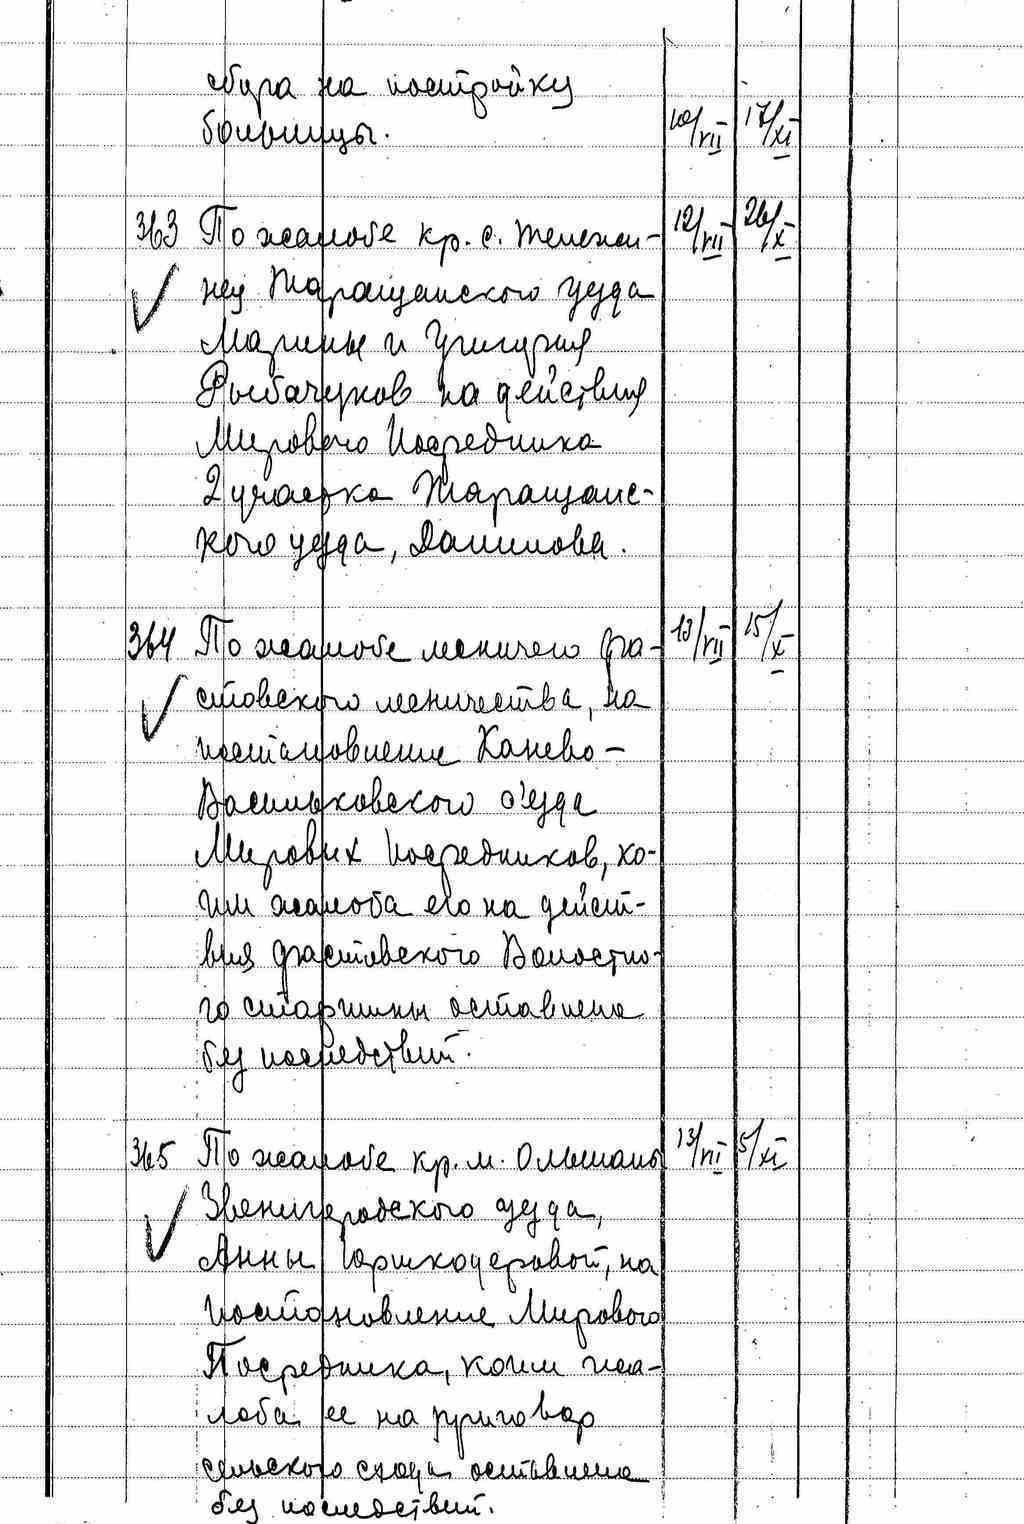 сбора на постройку
больницы. 10/VII 17/XI
363 По жалобе кр. с. Тележин-
цы Таращанского уезда 12/VII 26/X
Марины и Григория
Рыбачуков на действия
Мирового Посредника
2 участка Таращанс-
кого уезда, Данилова.
364 По жалобе лесничего Фа- 13/VII 15/X
стовского лесничества, на
постановление Канево-
Васильковского с'езда
Мировых Посредников, ко-
им жалоба его на дейст-
вия Фастовского Волостно-
го старшины оставлена
без последствий.
365 По жалобе кр. м. Ольшаны 13/VII 5/XI
Звенигородского уезда,
Анны, на
постановление Мирового
Посредника, коим жа-
лоба ее на приговор
сельского схода оставлена
без последствий.